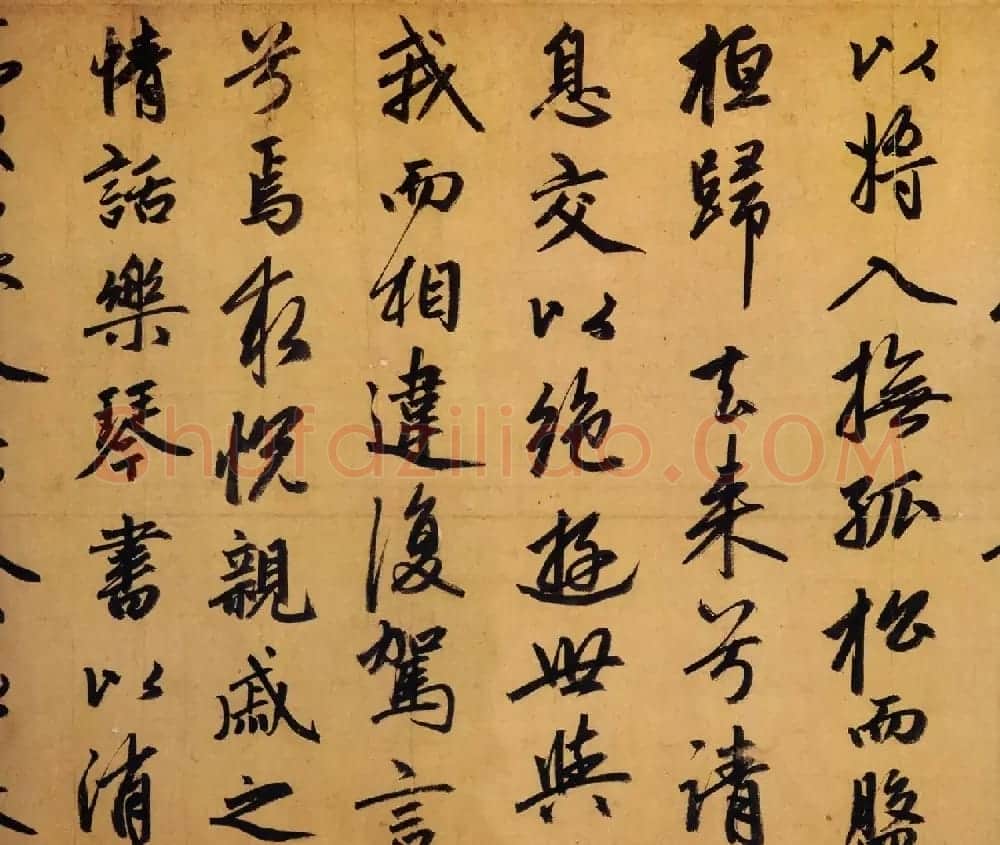 以將入撫孤松而盤
桓歸去來兮請
息交以絕遊世與
我而相違復駕言
兮焉求悅親戚之
情話樂琴書以消
Shufaziliao.COM